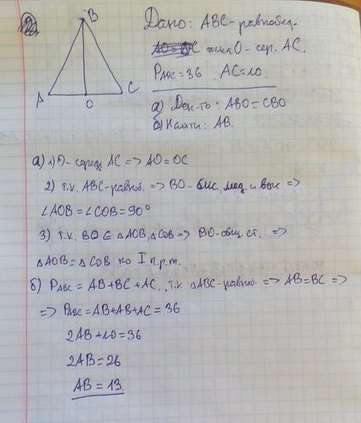 2
B
A
O
C
Дано: ABC-равнобед.
C точка O - сер. AC.
PABC=36 AC=10
а) Док-ть: ABO=CBO
б) Найти: AB.
а) 1) O- серед. AC => AO=OC
2) т.к. ABC-равноб. => BO- бис, мед. и выс =>
∠AOB=∠COB=90°
3) т.к. BO ∈ △AOB, △COB => BO-общ. ст. =>
△AOB=△COB по I п.р.т.
б) PABC = AB+BC+AC. т.к △ABC-равноб => AB=BC =>
=> PABC=AB+AB+AC=36
2AB+10=36
2AB=26
AB=13